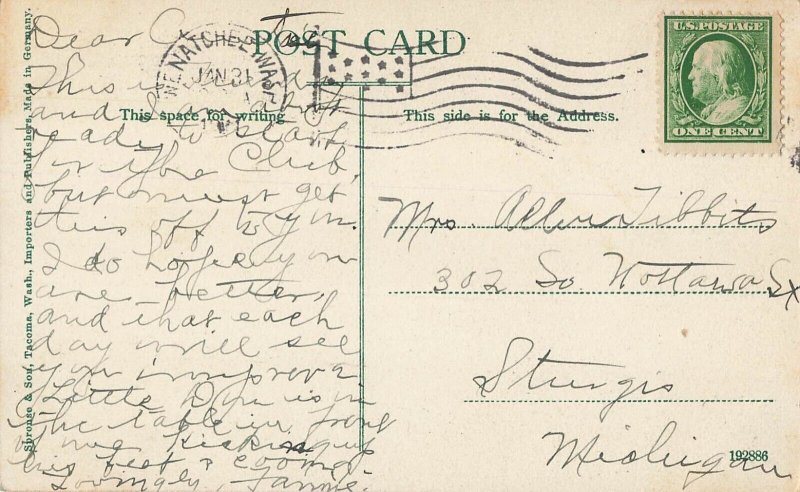 POST CARD
U.S. POSTAGE
ONE CENT
WENATCHEE, WASH.
JAN 31
This space for writing
This side is for the Address.
Sprouse & Son, Tacoma, Wash., Importers and Publishers. Made in Germany.
192886
Dear
This is
and I am about
ready to start
for the Club,
but must get
this off to you.
I do hope you
are better,
and that each
day will see
you improve
Little is in
the table in front
me kicking up
his feet &
Lovingly, Fannie.
Mrs. Tibbits
302 So. Nottawa St
Sturgis
Michigan